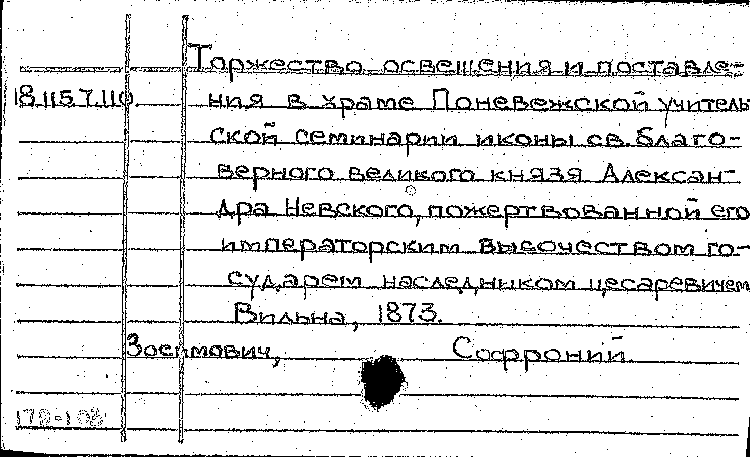 Торжество освещения и поставле=
18.115.7.110 ния в храме Поневежской учитель
ской семинарии иконы св. Благо-
верного великого князя Алексан-
дра Невского, пожертвованной его
императорским высочеством го-
сударем наследником цесаревичем
Вильна, 1873.
Зосимович, Софроний.